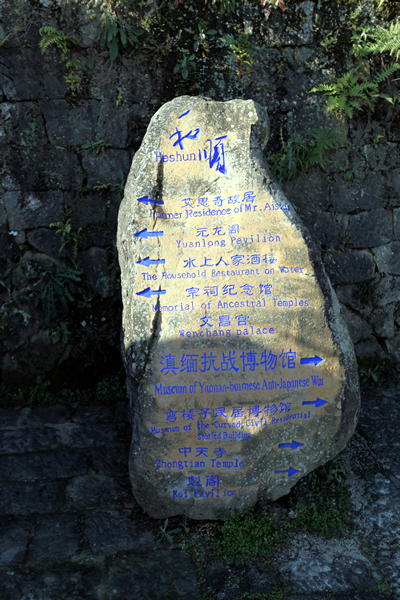 和顺
Heshun
艾思奇故居
Former Residence of Mr. Aisiqi
元龙阁
Yuanlong Pavilion
水上人家酒楼
The Household Restaurant on Water
宗祠纪念馆
Memorial of Ancestral Temples
文昌宫
Wenchang palace
滇缅抗战博物馆
Museum of Yunnan-burmese Anti-Japanese War
弯楼子民居博物馆
Museum of the Curved, Civil Residential
Storied Building
中天寺
Zhongtian Temple
魁阁
Kui Pavilion